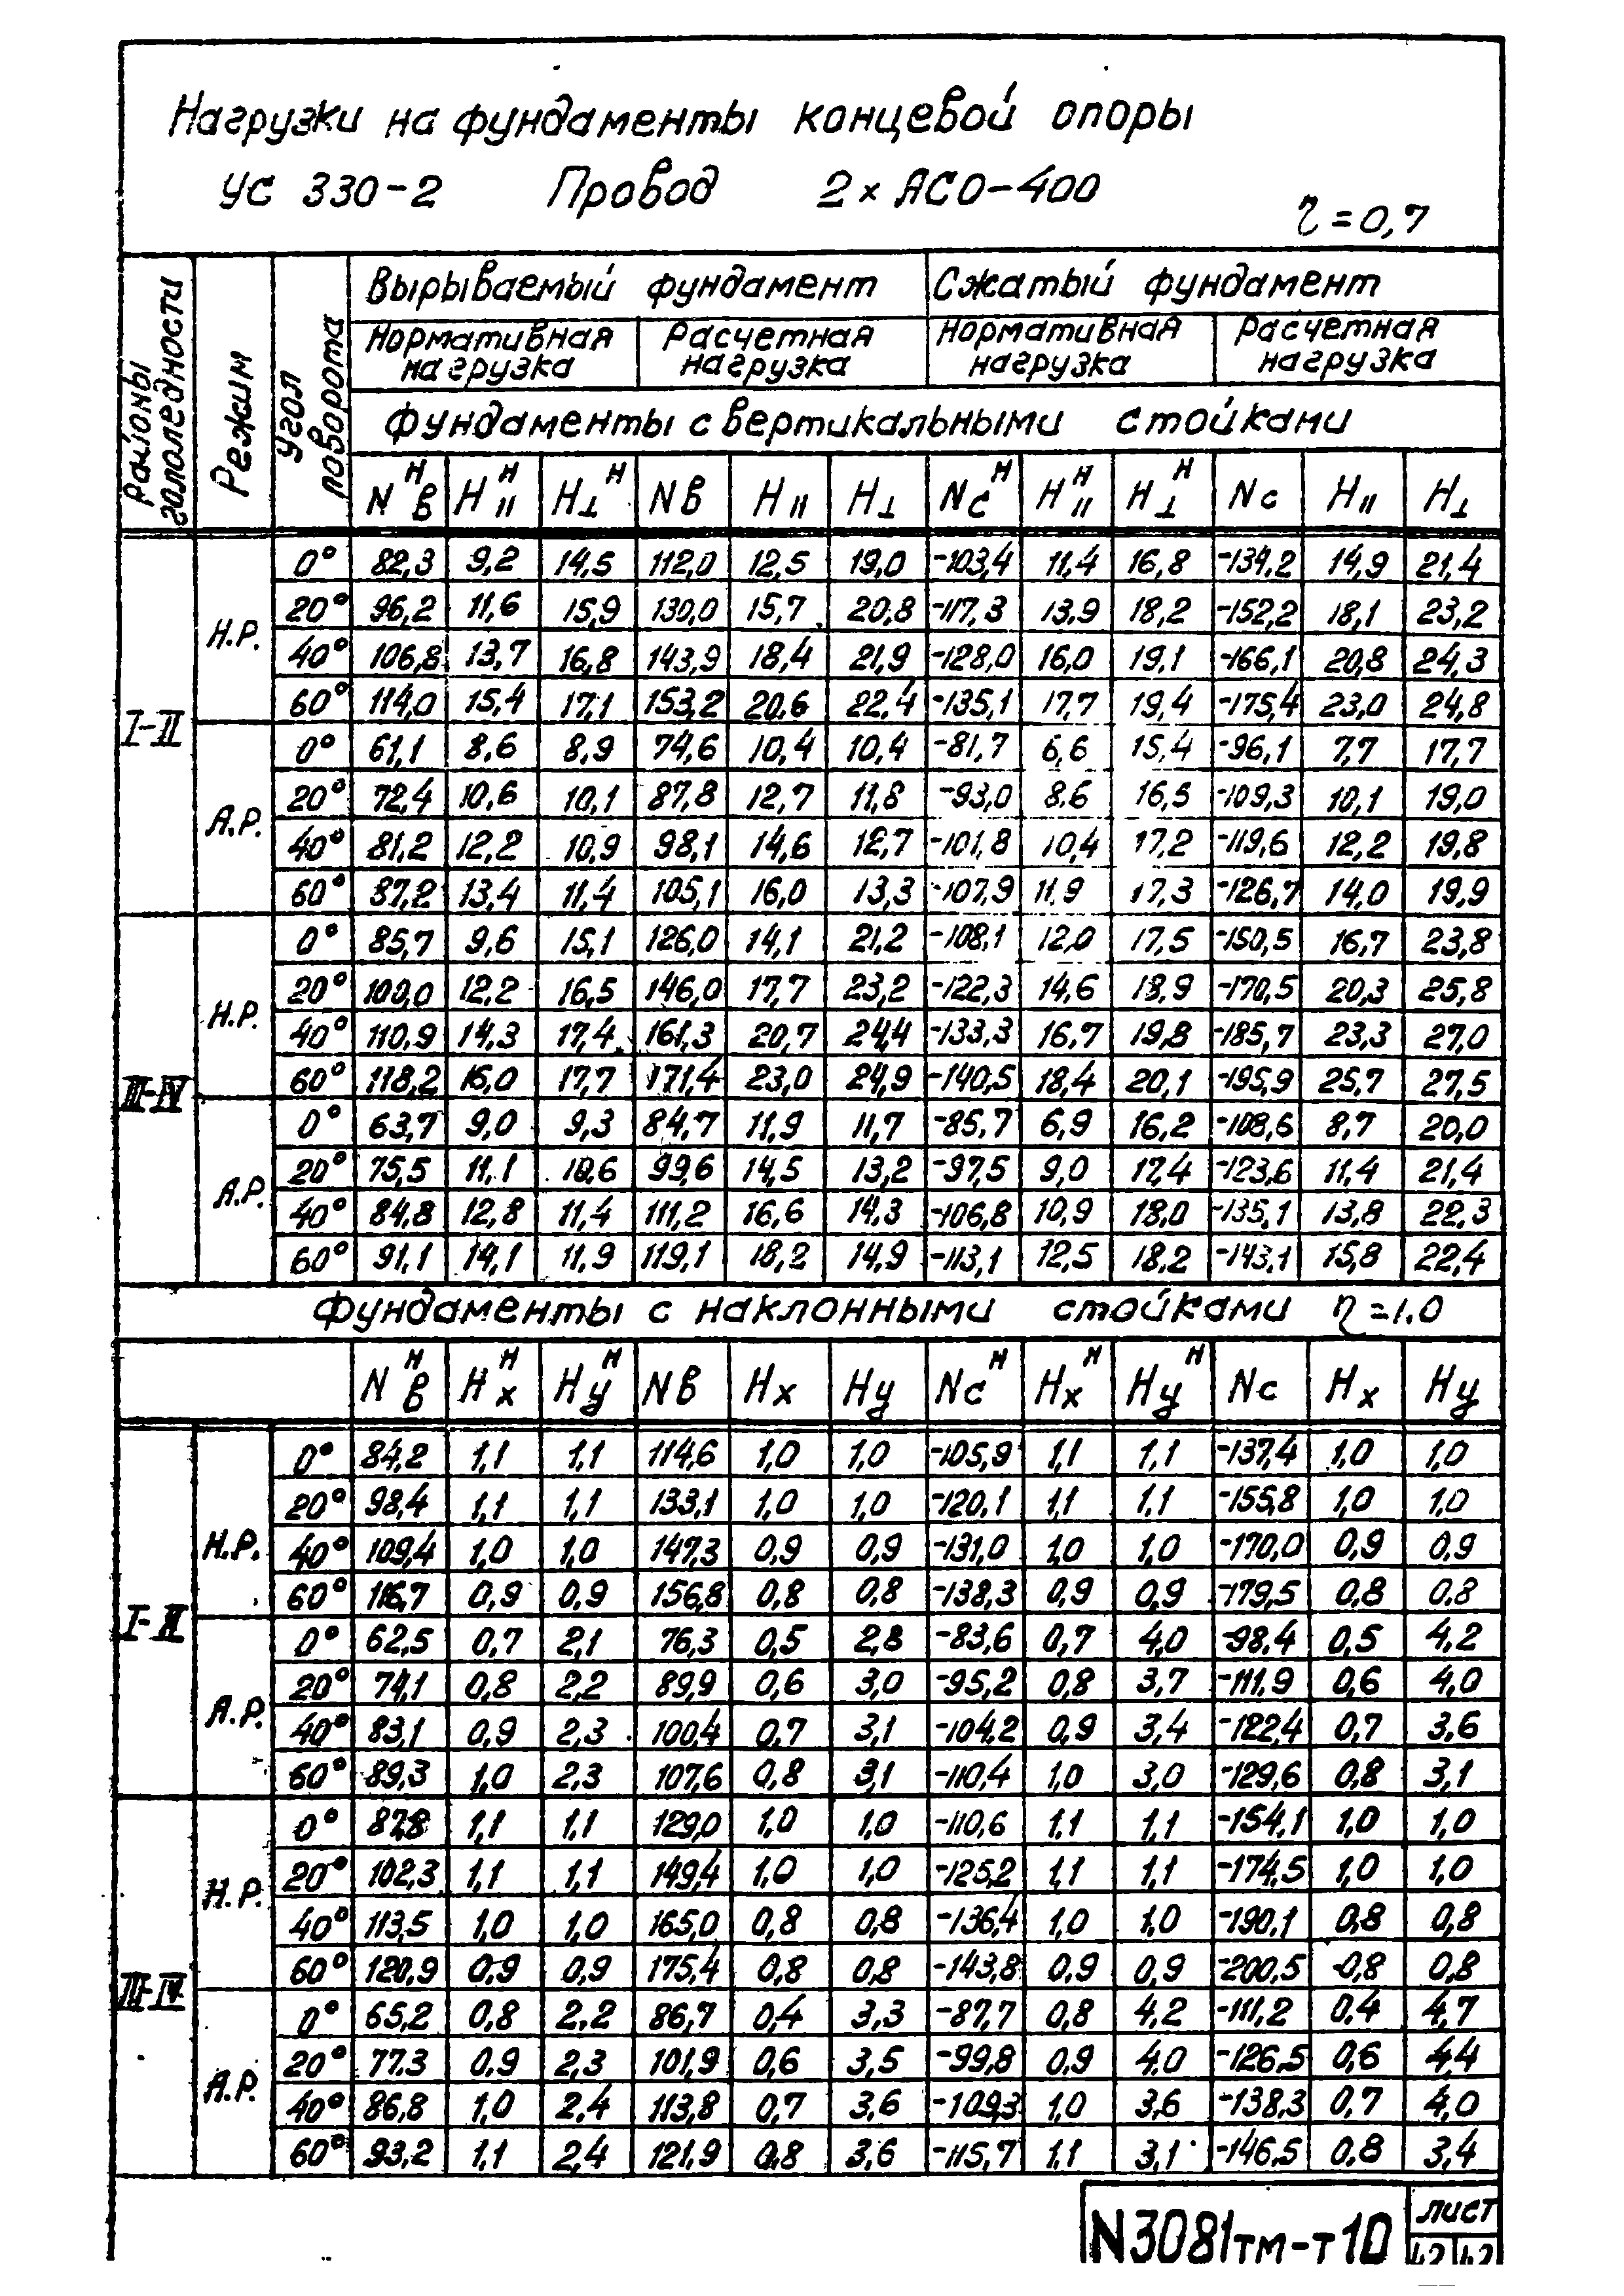 Нагрузки на фундаменты концевой опоры
УС 330-2 Провод 2×АСО-400
η=0,7
Районы гололедности Режим Угол поворота Вырываемый фундамент Сжатый фундамент
Нормативная нагрузка Расчетная нагрузка Нормативная нагрузка Расчетная нагрузка
Фундаменты с вертикальными стойками
Nв^н H_II^н H⊥^н Nв H_II H⊥ Nс^н H_II^н H⊥^н Nс H_II H⊥
I-II Н.Р. 0° 82,3 9,2 14,5 112,0 12,5 19,0 -103,4 11,4 16,8 -134,2 14,9 21,4
20° 96,2 11,6 15,9 130,0 15,7 20,8 -117,3 13,9 18,2 -152,2 18,1 23,2
40° 106,8 13,7 16,8 143,9 18,4 21,9 -128,0 16,0 19,1 -166,1 20,8 24,3
60° 114,0 15,4 17,1 153,2 20,6 22,4 -135,1 17,7 19,4 -175,4 23,0 24,8
А.Р. 0° 61,1 8,6 8,9 74,6 10,4 10,4 -81,7 6,6 15,4 -96,1 7,7 17,7
20° 72,4 10,6 10,1 87,8 12,7 11,8 -93,0 8.6 16,5 -109,3 10,1 19,0
40° 81,2 12,2 10,9 98,1 14,6 12,7 -101,8 10,4 17,2 -119,6 12,2 19,8
60° 87,2 13,4 11,4 105,1 16,0 13,3 -107,9 11,9 17,3 -126,7 14,0 19,9
III-IV Н.Р. 0° 85,7 9,6 15,1 126,0 14,1 21,2 -108,1 12,0 17,5 -150,5 16,7 23,8
20° 100,0 12,2 16,5 146,0 17,7 23,2 -122,3 14,6 18,9 -170,5 20,3 25,8
40° 110,9 14,3 17,4 161,3 20,7 24,4 -133,3 16,7 19,8 -185,7 23,3 27,0
60° 118,2 16,0 17,7 171,4 23,0 24,9 -140,5 18,4 20,1 -195,9 25,7 27,5
А.Р. 0° 63,7 9,0 9,3 84,7 11,9 11,7 -85,7 6,9 16,2 -108,6 8,7 20,0
20° 75,5 11,1 10,6 99,6 14,5 13,2 -97,5 9,0 17,4 -123,6 11,4 21,4
40° 84,8 12,8 11,4 111,2 16,6 14,3 -106,8 10,9 18,0 -135,1 13,8 22,3
60° 91,1 14,1 11,9 119,1 18,2 14,9 -113,1 12,5 18,2 -143,1 15,8 22,4
Фундаменты с наклонными стойками η=1.0
Nв^н Hx^н Hy^н Nв Hx Hy Nс^н Hx^н Hy^н Nс Hx Hy
I-II Н.Р. 0° 84,2 1,1 1,1 114,6 1,0 1,0 -105,9 1,1 1,1 -137,4 1,0 1,0
20° 98,4 1,1 1,1 133,1 1,0 1,0 -120,1 1,1 1,1 -155,8 1,0 1,0
40° 109,4 1,0 1,0 147,3 0,9 0,9 -131,0 1,0 1,0 -170,0 0,9 0,9
60° 116,7 0,9 0,9 156,8 0,8 0,8 -138,3 0,9 0,9 -179,5 0,8 0,8
А.Р. 0° 62,5 0,7 2,1 76,3 0,5 2,8 -83,6 0,7 4,0 -98,4 0,5 4,2
20° 74,1 0,8 2,2 89,9 0,6 3,0 -95,2 0,8 3,7 -111,9 0,6 4,0
40° 83,1 0,9 2,3 100,4 0,7 3,1 -104,2 0,9 3,4 -122,4 0,7 3,6
60° 89,3 1,0 2,3 107,6 0,8 3,1 -110,4 1,0 3,0 -129,6 0,8 3,1
III-IV Н.Р. 0° 87,8 1,1 1,1 129,0 1,0 1,0 -110,6 1,1 1,1 -154,1 1,0 1,0
20° 102,3 1,1 1,1 149,4 1,0 1,0 -125,2 1,1 1,1 -174,5 1,0 1,0
40° 113,5 1,0 1,0 165,0 0,8 0,8 -136,4 1,0 1,0 -190,1 0,8 0,8
60° 120,9 0,9 0,9 175,4 0,8 0,8 -143,8 0,9 0,9 -200,5 0,8 0,8
А.Р. 0° 65,2 0,8 2,2 86,7 0,4 3,3 -87,7 0,8 4,2 -111,2 0,4 4,7
20° 77.3 0,9 2,3 101,9 0,6 3,5 -99,8 0,9 4.0 -126,5 0,6 4,4
40° 86,8 1,0 2,4 113,8 0,7 3,6 -109,3 1,0 3,6 -138,3 0,7 4,0
60° 93,2 1,1 2,4 121,9 0,8 3,6 -115,7 1,1 3,1 -146,5 0,8 3,4
N3081тм-т10 лист